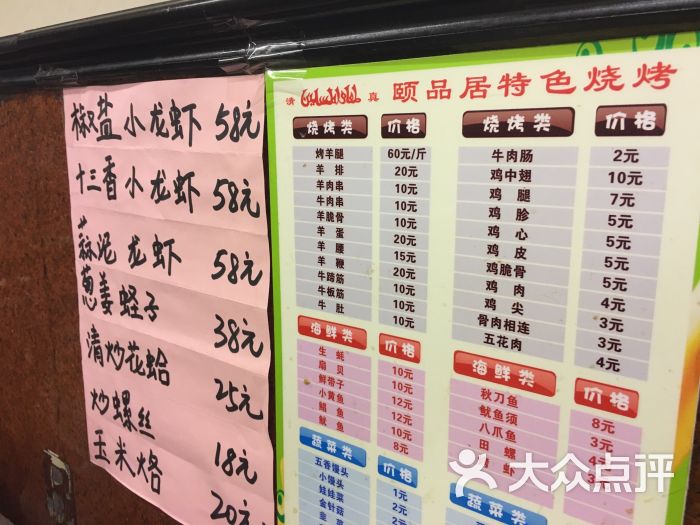 椒盐小龙虾 58元
十三香小龙虾 58元
蒜泥龙虾 58元
葱姜蛏子 38元
清炒花蛤 25元
炒螺丝 18元
玉米烙 20元
清 真 颐品居特色烧烤
烧烤类 价格
烤羊腿 60元/斤
羊排 20元
羊肉串 10元
牛肉串 10元
羊脆骨 10元
羊蛋 20元
羊腰 15元
羊鞭 20元
牛蹄筋 10元
牛板筋 10元
牛肚 10元
海鲜类 价格
生蚝 10元
扇贝 10元
鲜带子 12元
小黄鱼 10元
鲳鱼 12元
鱿鱼 8元
蔬菜类 价格
五香馒头 1元
小馒头 2元
娃娃菜 2元
金针菇
韭菜
烧烤类 价格
牛肉肠 2元
鸡中翅 10元
鸡腿 7元
鸡胗 5元
鸡心 5元
鸡皮 5元
鸡脆骨 5元
鸡肉 4元
鸡尖 3元
骨肉相连 3元
五花肉 4元
海鲜类 价格
秋刀鱼 8元
鱿鱼须 3元
八爪鱼
田螺
虾
蔬菜类
大众点评